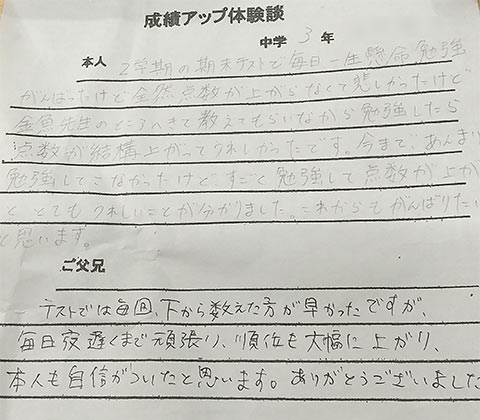 成績アップ体験談
中学 3 年
本人 2学期の期末テストで毎日一生懸命勉強
がんばったけど全然点数が上がらなくて悲しかったけど
金魚先生のところへきて教えてもらいながら勉強したら
点数が結構上がってうれしかったです。今まで、あんまり
勉強してこなかったけどすごく勉強して点数が上が
と、とてもうれしいことが分かりました。これからもがんばりたい
と思います。
ご父兄
テストでは毎回、下から数えた方が早かったですが、
毎日夜遅くまで頑張り、順位も大幅に上がり、
本人も自信がついたと思います。ありがとうございました